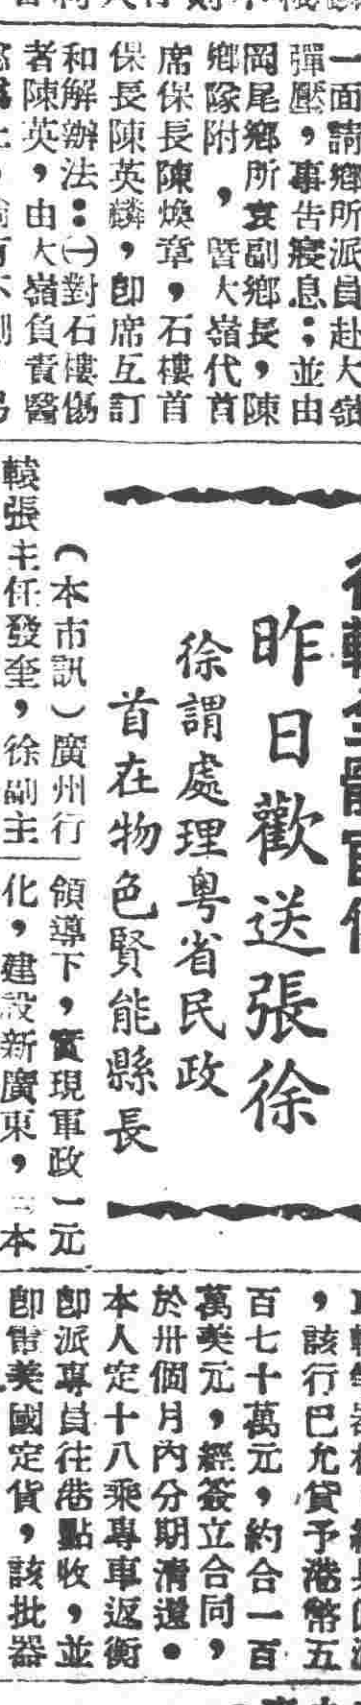 一面請鄉所派員赴大嶺
彈壓，事告寢息；並由
岡尾鄉所袁副鄉長，陳
鄉隊附，暨大嶺代首
席保長陳煥章，石樓首
保長陳英麟，卽席互訂
和解辦法：㈠對石樓傷
者陳英，由大嶺負責醫
昨日歡送張徐
徐謂處理粤省民政
首在物色賢能縣長
（本市訊）廣州行
轅張主任發奎，徐副主
領導下，實現軍政一元
化，建設新廣東，本
，該行已允貸予港幣五
百七十萬元，約合一百
萬美元，經簽立合同，
於卅個月內分期清還。
本人定十八乘專車返衡
卽派專員往港點收，並
卽電美國定貨，該批器